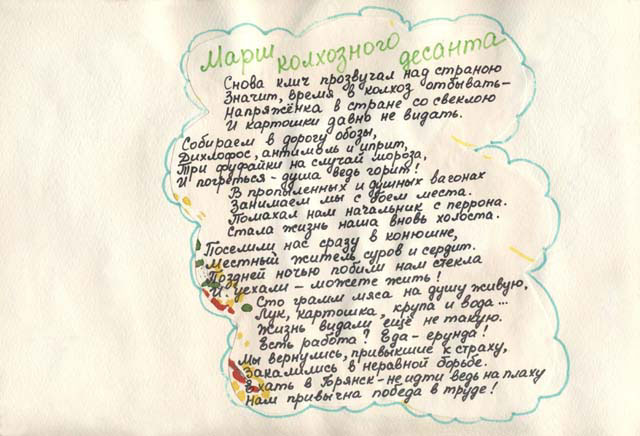 Марш колхозного десанта
Снова клич прозвучал над страною
Значит, время в колхоз отбывать–
Напряжёнка в стране со свеклою
И картошки давно не видать.
Собираем в дорогу обозы,
Дихлофос, антимоль и иприт,
Три фуфайки на случай мороза,
И погреться – душа ведь горит!
В пропыленных и душных вагонах
Занимаем мы с боем места.
Помахал нам начальник с перрона.
Стала жизнь наша вновь холоста.
Поселили нас сразу в конюшне,
Местный житель суров и сердит.
Поздней ночью побили нам стекла
И уехали – можете жить!
Сто грамм мяса на душу живую,
Лук, картошка, крупа и вода...
Жизнь видали ещё не такую.
Есть работа? Еда – ерунда!
Мы вернулись, привыкшие к страху,
Закалились в неравной борьбе.
Ехать в Брянск – не идти ведь на плаху
Нам привычна победа в труде!